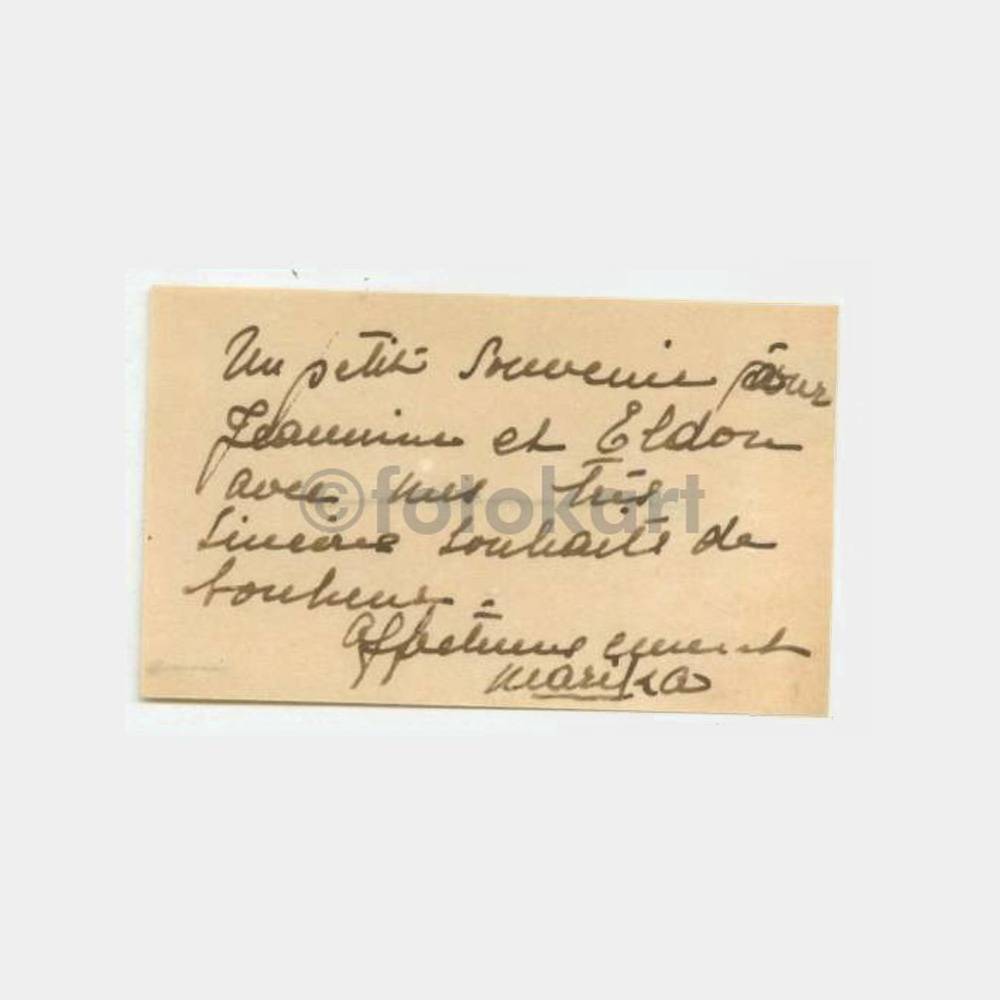 Un petit Souvenir pour
Jeannine et Eldon
avec mes très
Sincère Souhaits de
bonheur.
Affectueusement
Marika
©fotokart